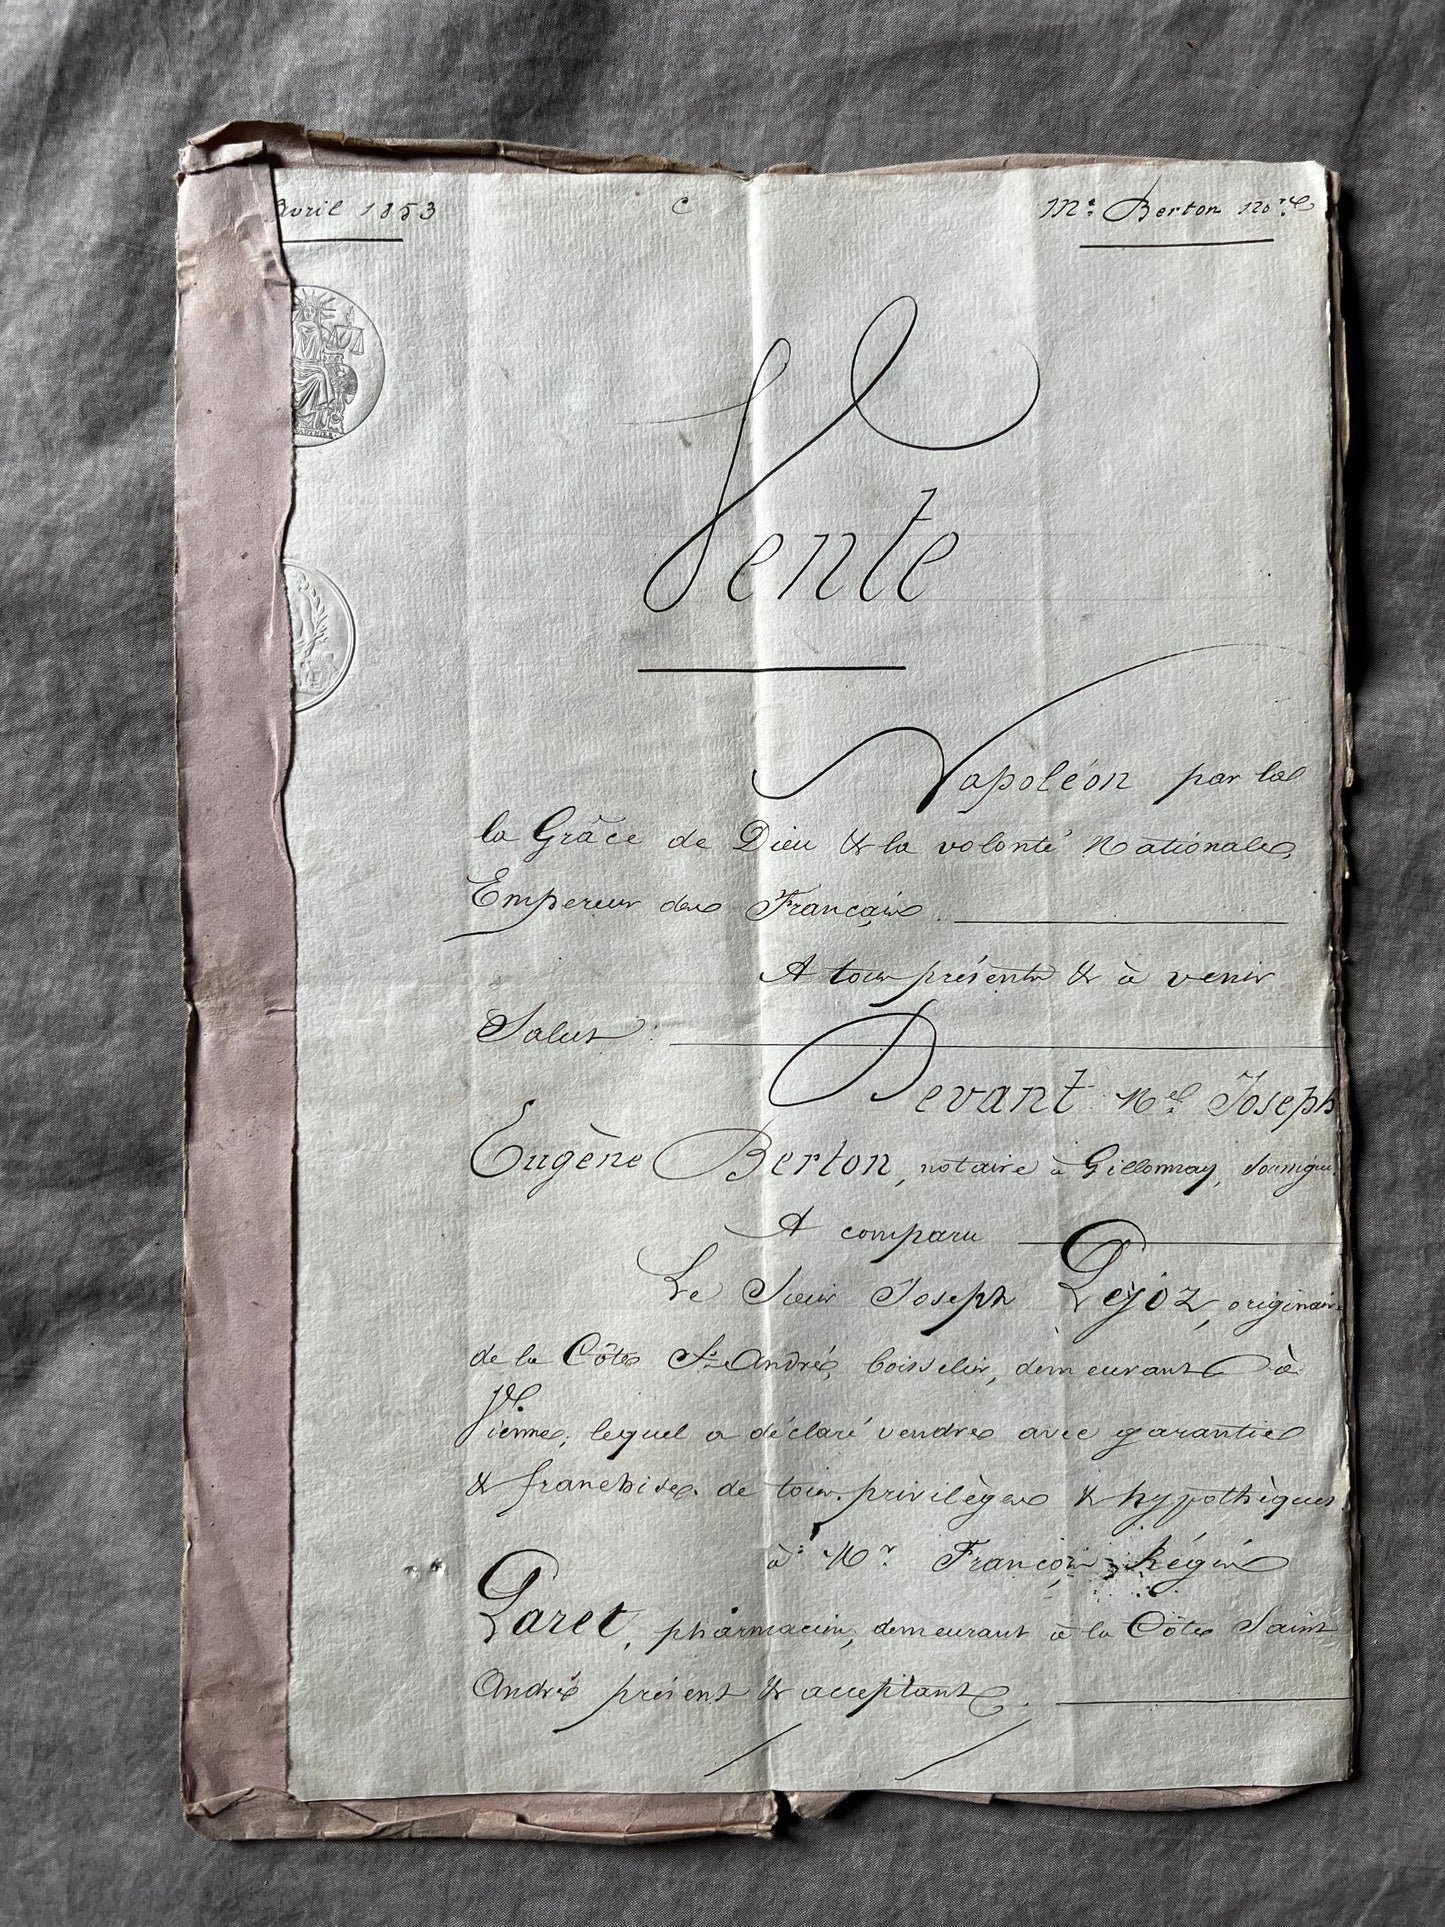 Avril 1853 C Me. Berton nore
Vente
Napoléon par la
la Grâce de Dieu & la volonté Nationale,
Empereur des Français
A tous présents & à venir
Salut :
Devant Me Joseph
Eugène Berton, notaire à Gillonnay, soussigné
A comparu
Le Sieur Joseph Pejoz, originaire
de la Côte St André, boisselier, demeurant à
Vienne, lequel a déclaré vendre avec garantie
& franchise de tous privilèges & hypothèques
à Mr François Régis
Paret, pharmacien, demeurant à la Côte Saint
André présent & acceptant.